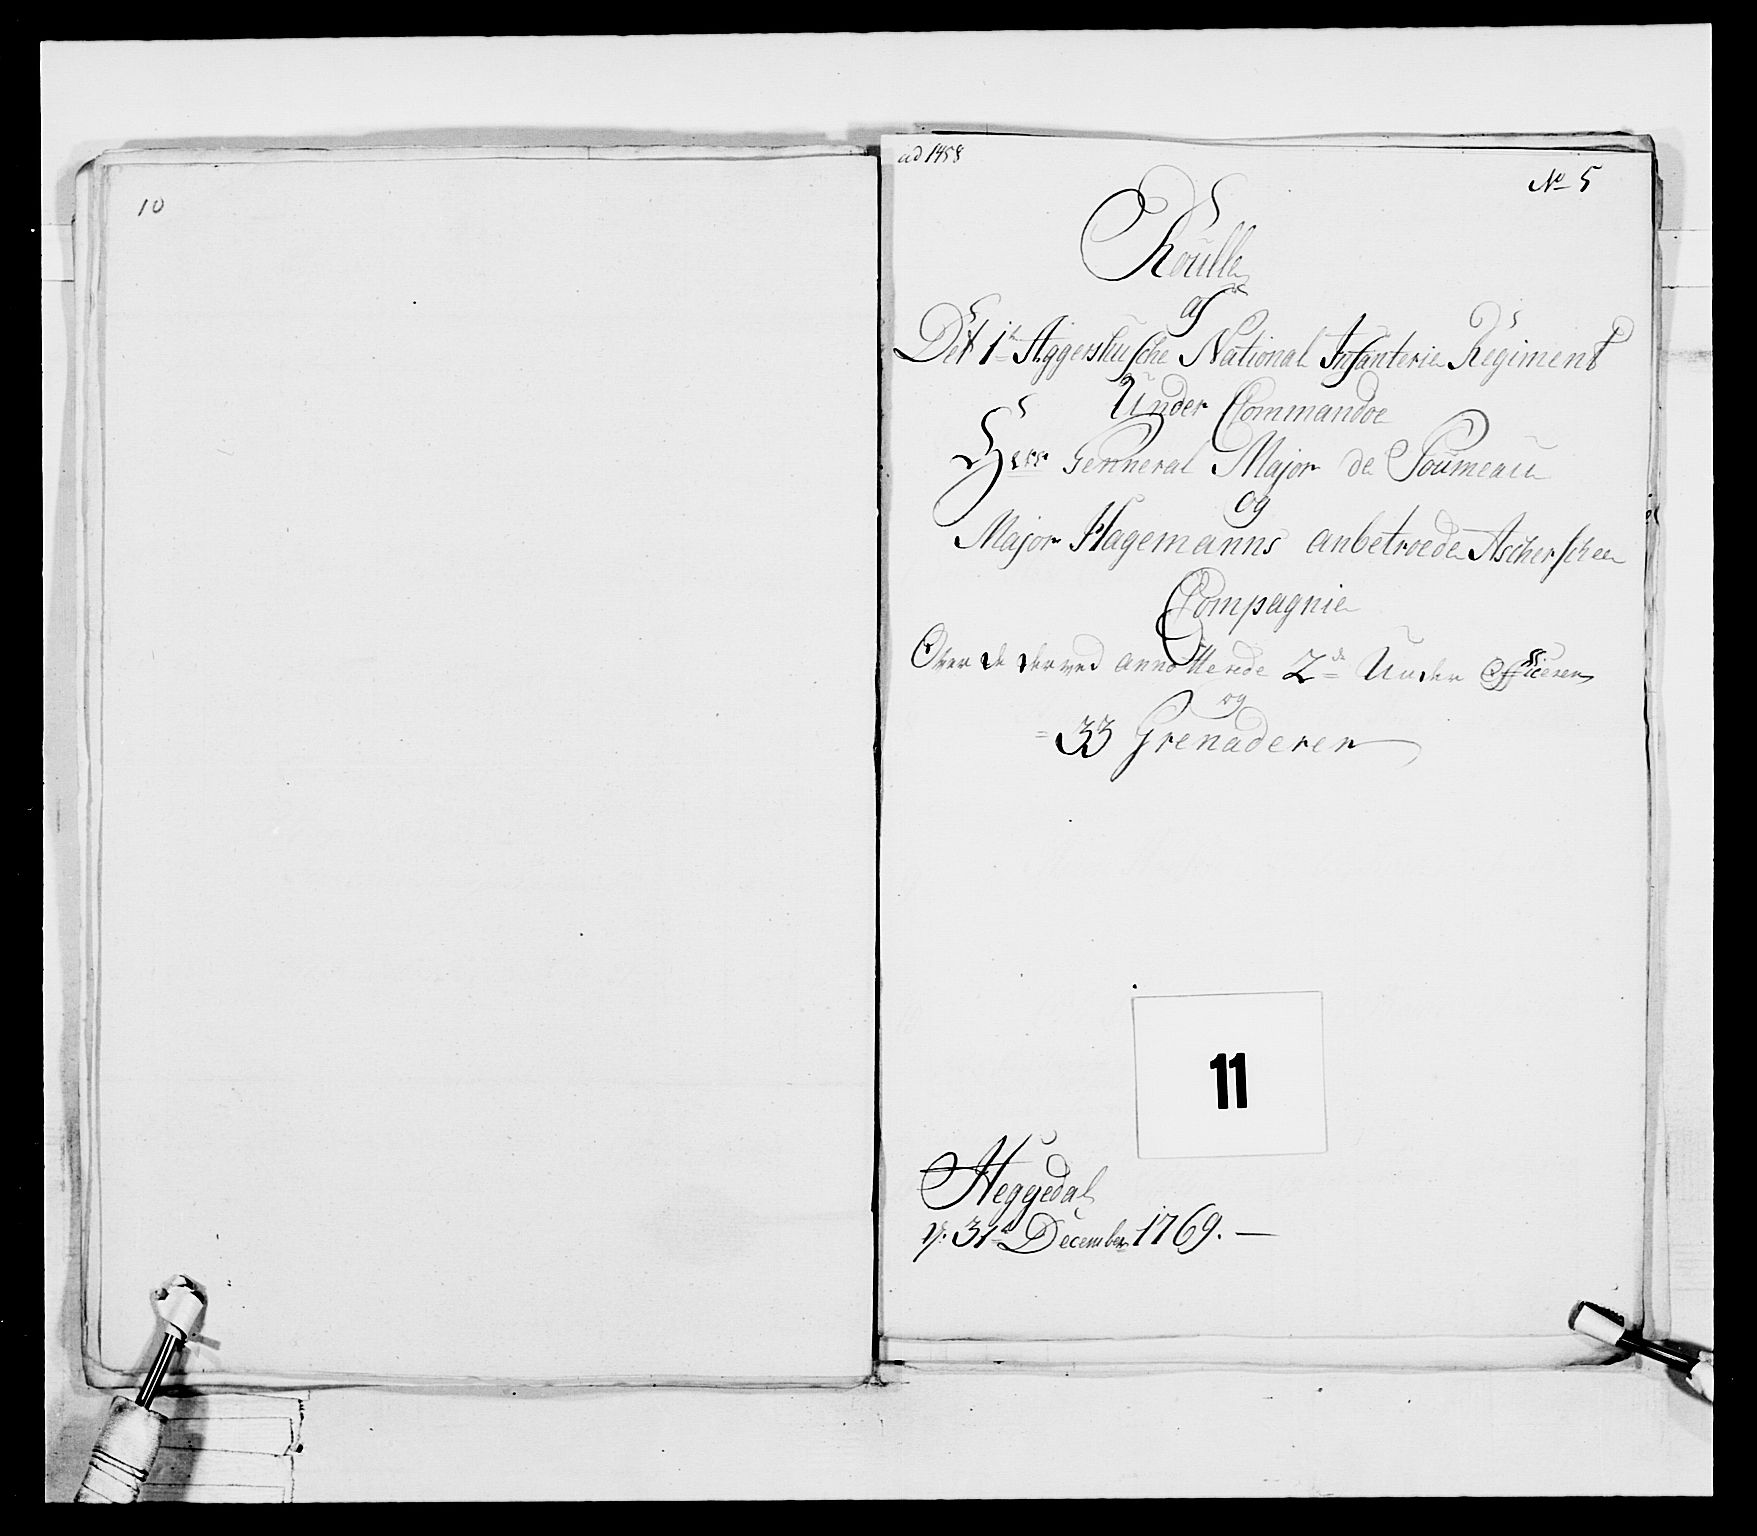 10
ad 1458
No 5
Roulle
af
Det 1te Aggershusche National Infanterie Regiment
Under Commandoe
Herr Genneral Major de Poumeau
og
Major Hagemanns anbetroede Ascherschee
Compagnie
Over de derved annotterede 2de Under Officerer
og
33 Grenaderer
11
Heggedal
d. 31te December 1769. —